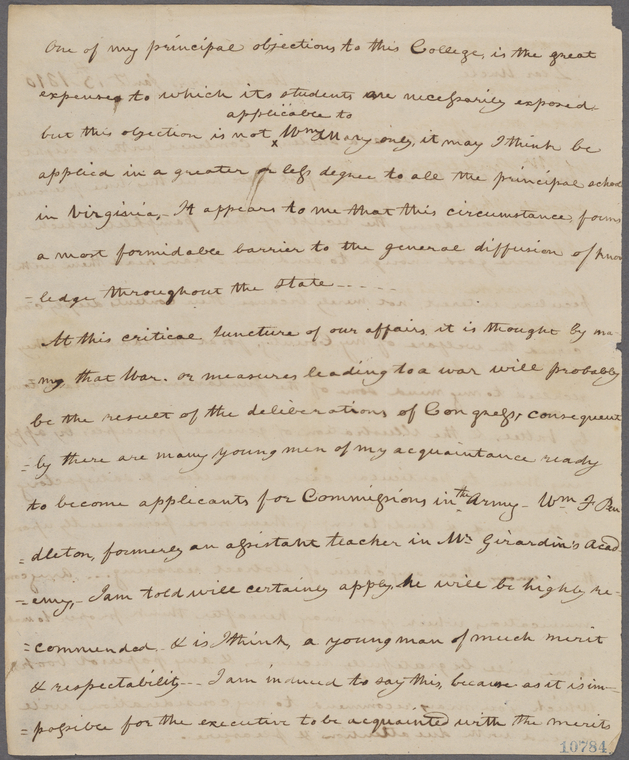 One of my principal objections to this College, is the great
expenses to which its students are necessarily exposed.
applicable to
but this objection is not x Wm & Mary only, it may I think be
applied in a greater or less degree to all the principal school
in Virginia,- It appears to me that this circumstance, forms
a most formidable barrier to the general diffusion of know
=ledge throughout the State - - - - -
At this critical Juncture of our affairs, it is thought by ma-
ny that War. or measures leading to a war will probably
be the result of the deliberations of Congress, consequent
=ly there are many young men of my acquaintance ready
the
to become applicants for Commissions in Army - Wm F Pen
=dleton, formerly an assistant teacher in Mr Girardin's Acad
=emy,- I am told will certainly apply, he will be highly re-
=commended. & is I think, a young man of much merit
& respectability -- I am induced to say this, because as it is im-
=possible for the executive to be acquainted with the merits
10784